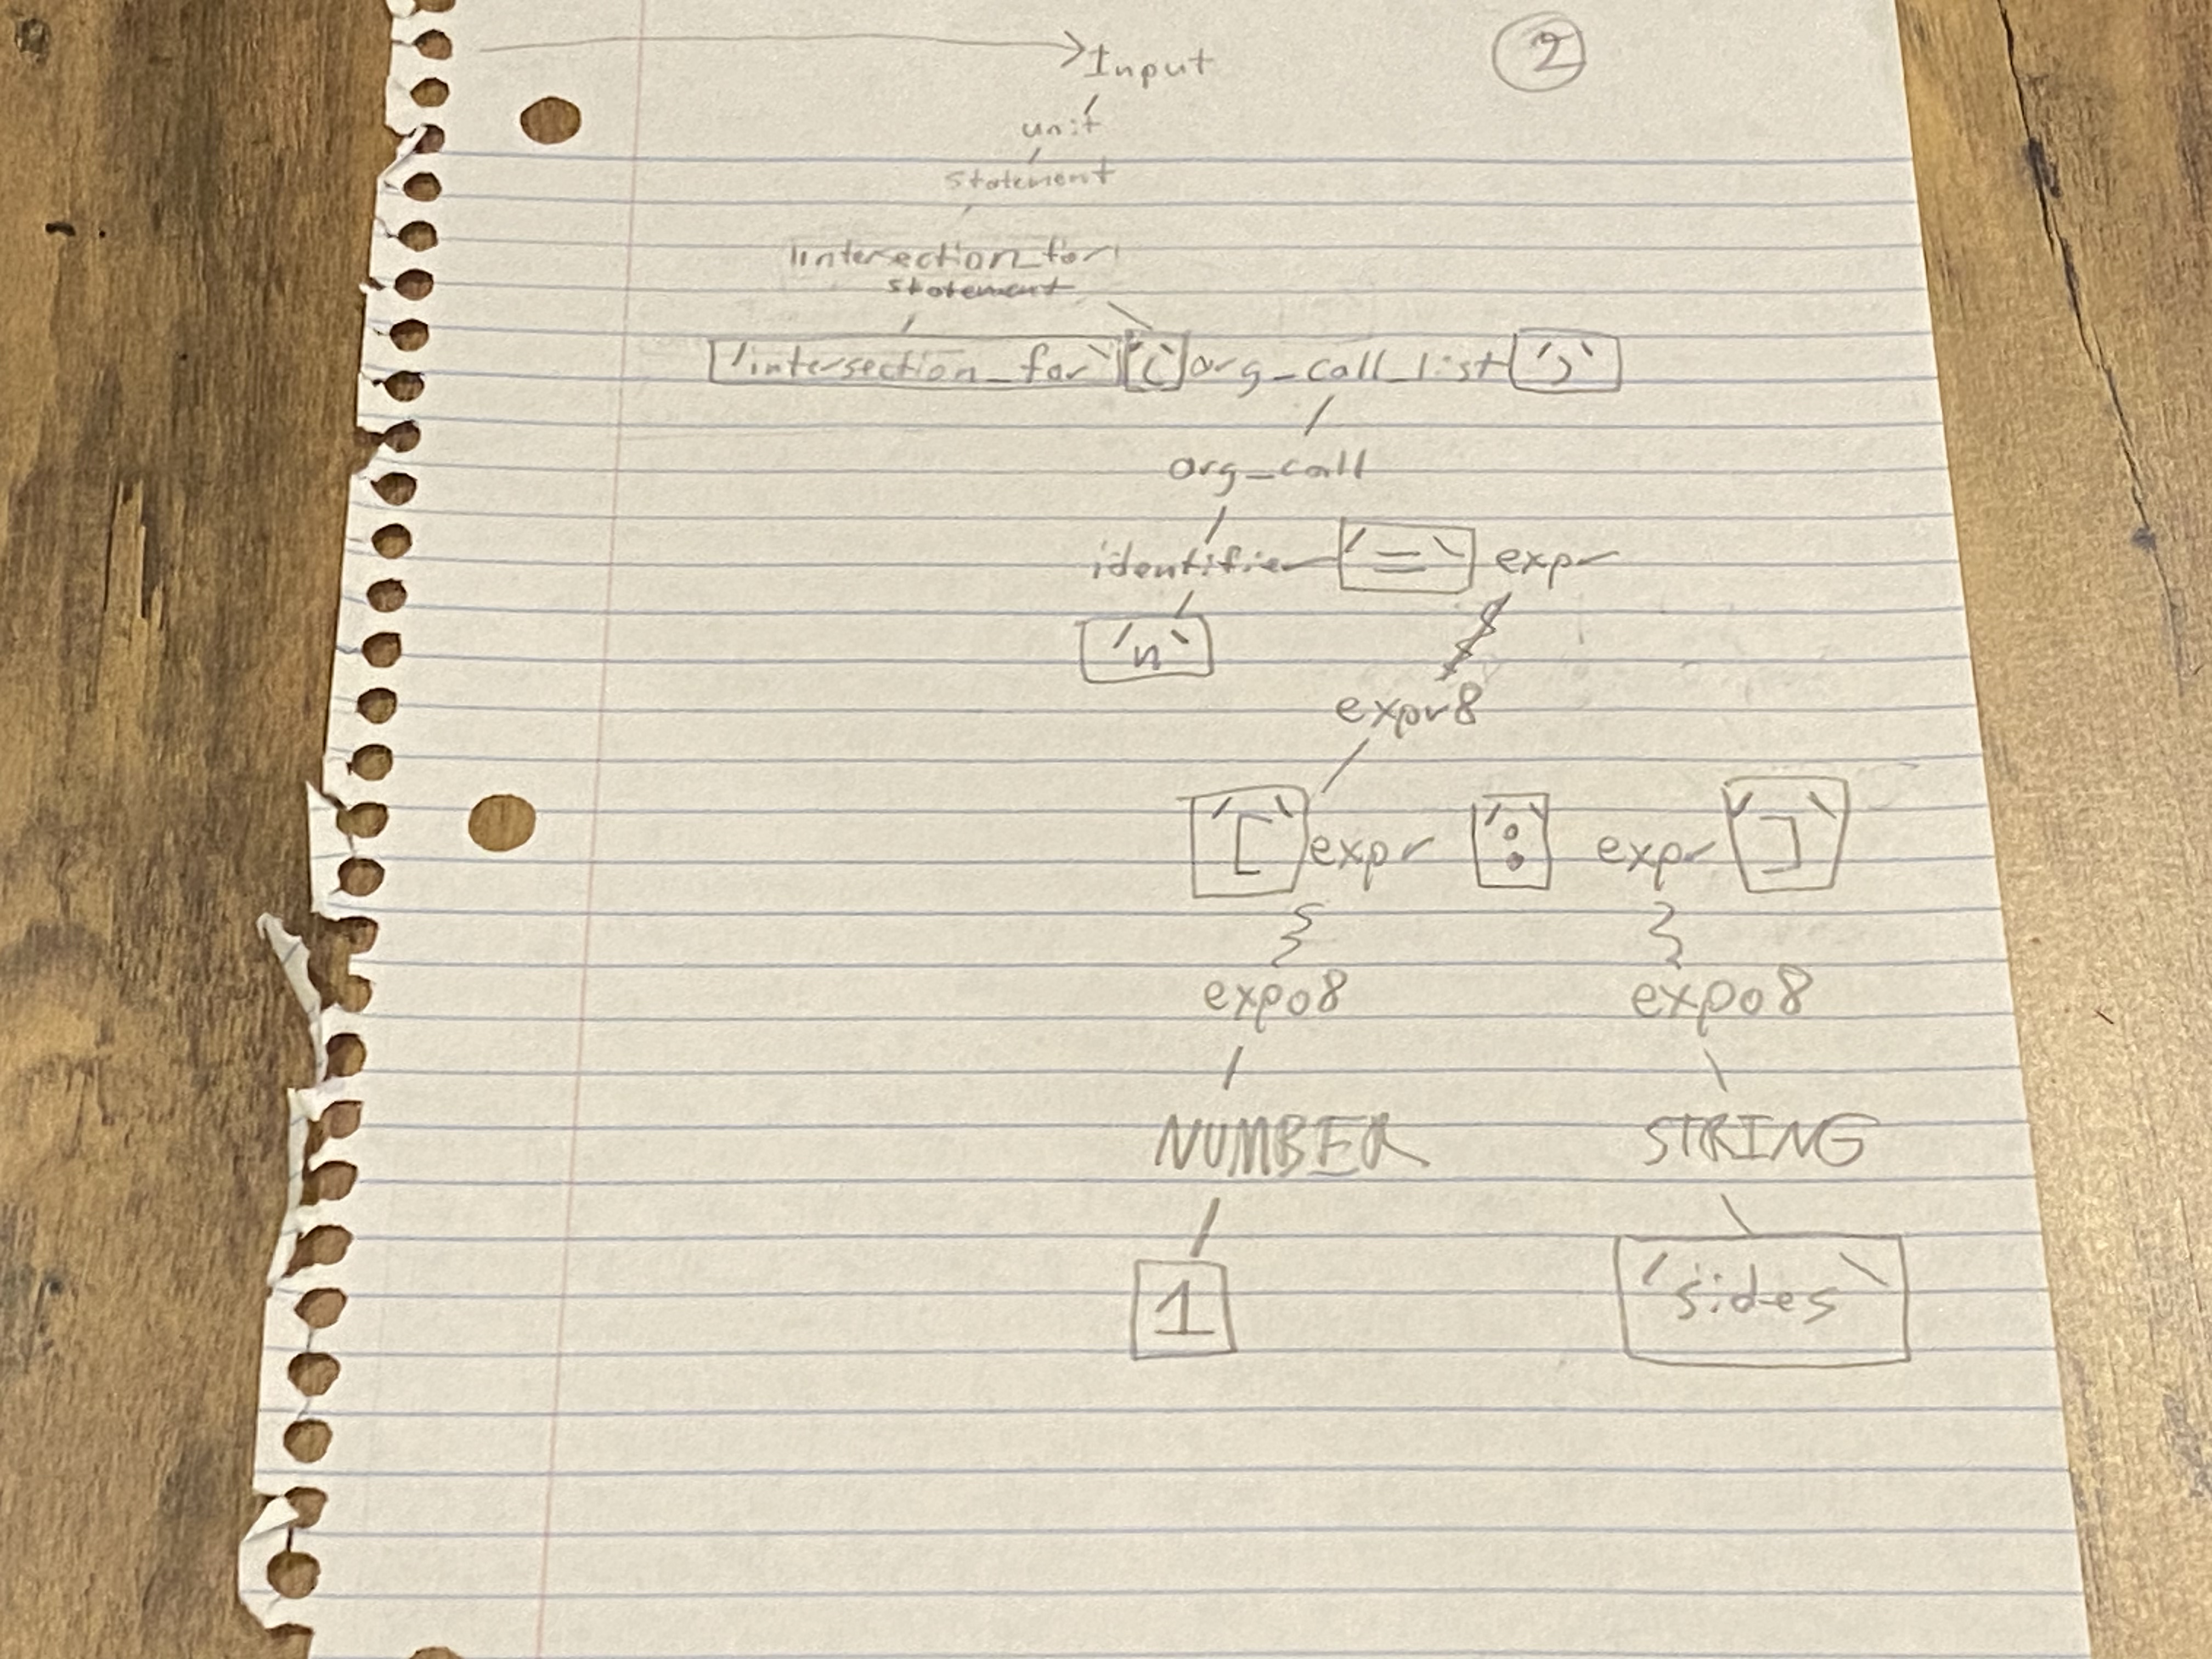 Input
2
unit
statement
intersection_for
statement
'intersection_for' '(' arg_call_list ')'
arg_call
identifier '=' expr
'n'
expr8
'[' expr ':' expr ']'
expo8 expo8
NUMBER STRING
1 'sides'